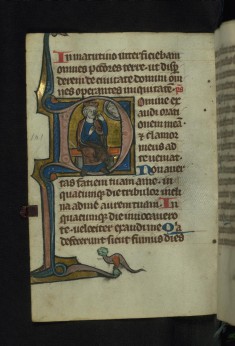 In matutino interficiebam
omnes peccores terre ut disp
derem de civitate domini om
nes operantes iniquitatē ps
Domine ex
audi orati
onem meā
& clamor
meus ad
te veniat
Non aver
tas faciem tuam a me in
quacumque die tribulor incli
na ad me aurem tuam In
quacumque die invocavero
te velociter exaudi me Qa
defecerunt sicut fumus dies